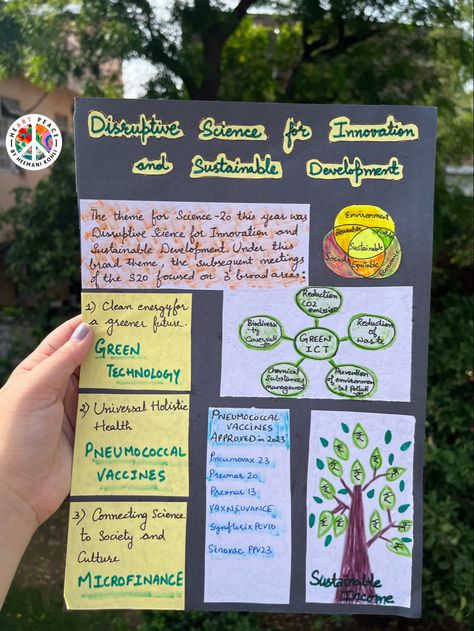 HEART PEACE
BY HEEMANI KOHLI
Disruptive Science for Innovation
and Sustainable Development
The theme for Science-20 this year was
Disruptive Sience for Innovation and
Sustainable Development. Under this
broad theme, the subsequent meetings
of the S20 focused on 3 broad areas:
Environment
Bearable
Viable
Sustainable
Social
Equitable
Economic
1) Clean energy for
a greener future.
GREEN
TECHNOLOGY
Reduction
CO2
emission
Biodivers-
ity
Conservati
Reduction
of Waste
GREEN
ICT
Chemical
Substances
management
Prevention
of environmen
-tal Polluti
2) Universal Holistic
Health
PNEUMOCOCCAL
VACCINES
PNEUMOCOCCAL
VACCINES
APPROVED in 2023
Pneumovax 23
Prevnar 20
Prevnar 13
VAXNEUVANCE
Synflorix PCV10
Sinovac PPV23
3) Connecting Science
to Society and
Culture
MICROFINANCE
₹
Sustainable
Income